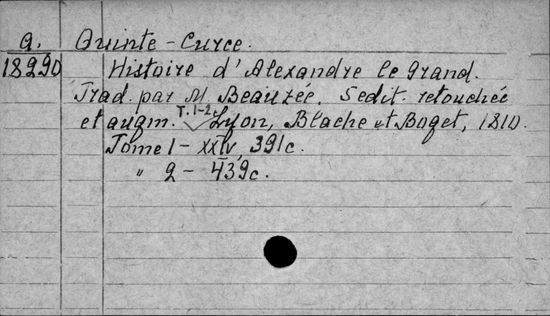 a. Quinte-Curce.
18290 Histoire d'Alexandre le Grand.
Trad. par M. Beauzée. 5 edit. retouchée
et augm. T.1-2. Lyon, Blache et Boget, 1810.
Tome 1 - XXIV, 391c.
" 2 - 439c.